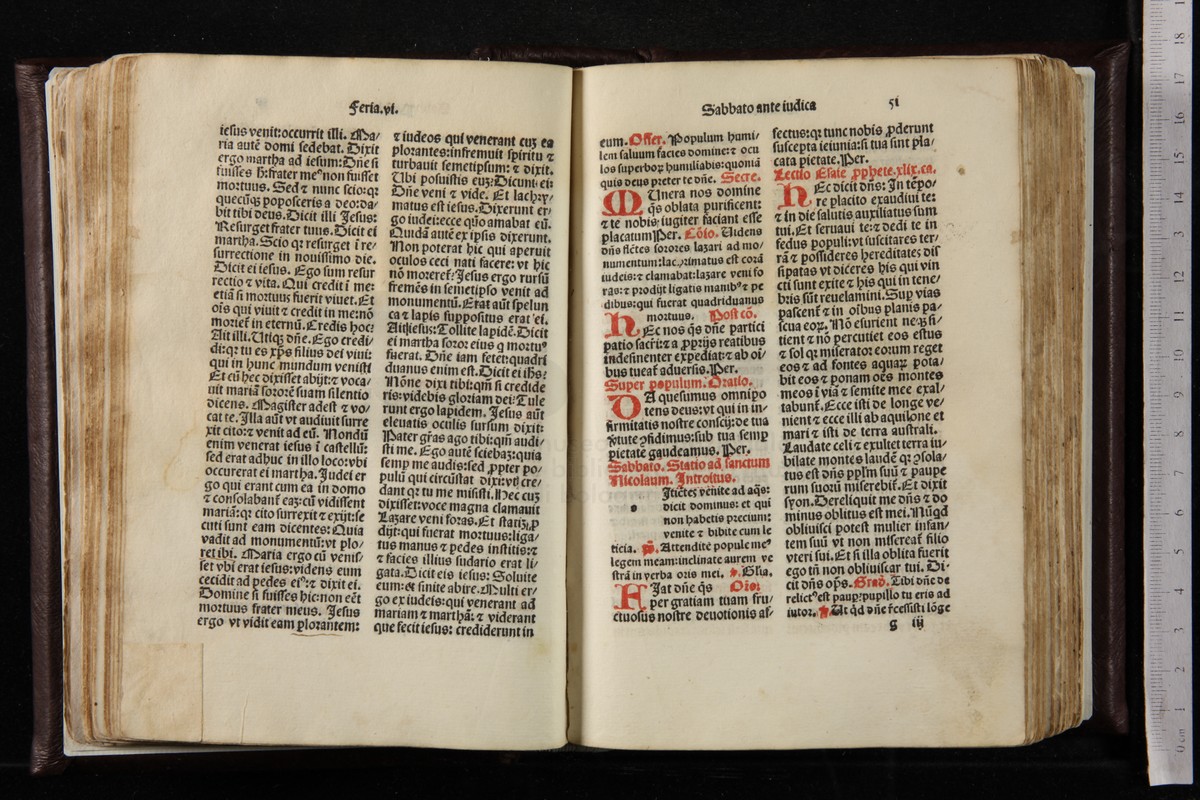 Feria.vi.
iesus venit:occurrit illi. Ma/
ria autē domi sedebat. Dixit
ergo martha ad iesum:Dñe si
fuisses h̄:frater meꝰ non fuisset
mortuus. Sed ⁊ nunc scio:qꝛ
quecūqꝫ poposceris a deo:da/
bit tibi deus. Dicit illi Jesus:
Resurget frater tuus. Dicit ei
martha. Scio qꝛ resurget ī re/
surrectione in nouissimo die.
Dicit ei iesus. Ego sum resur
rectio ⁊ vita. Qui credit ī me:
etiā si mortuus fuerit viuet. Et
oīs qui viuit ⁊ credit in me:nō
morieꞇ̃ in eternū. Credis hoc:
Ait illi. Utiqꝫ dñe. Ego credi/
di:qꝛ tu es xp̄s filius dei viui:
qui in hunc mundum venisti
Et cū hec dixisset abijt:⁊ voca/
uit mariā sororē suam silentio
dicens. Magister adest ⁊ vo/
cat te. Illa aūt vt audiuit surre
xit cito:⁊ venit ad eū. Nondū
enim venerat iesus ī castellū:
sed erat adhuc in illo loco:vbi
occurerat ei martha. Judei er
go qui erant cum ea in domo
⁊ consolabanꞇ̃ eaꝫ:cū vidissent
mariā:qꝛ cito surrexit ⁊ exijt:se
cuti sunt eam dicentes: Quia
vadit ad monumentū:vt plo/
ret ibi. Maria ergo cū venis/
set vbi erat iesus:videns eum
cecidit ad pedes eiꝰ:⁊ dixit ei.
Domine si fuisses hic:non eēt
mortuus frater meus. Jesus
ergo vt vidit eam plorantem:
⁊ iudeos qui venerant cuꝫ ea
plorantes:infremuit spiritu ⁊
turbauit semetipsum: ⁊ dixit.
Ubi posuistis euꝫ:Dicunt ei:
Dñe veni ⁊ vide. Et lachꝛy/
matus est iesus. Dixerunt er/
go iudei:ecce quō amabat eū.
Quidā autē ex ipsis dixerunt.
Non poterat hic qui aperuit
oculos ceci nati facere: vt hic
nō moreret̃:Jesus ergo rursū
fremēs in semetipso venit ad
monumentū. Erat aūt spelun
ca ⁊ lapis suppositus erat ei.
Ait iesus: Tollite lapidē. Dicit
ei martha soror eius q̄ mortuꝰ
fuerat. Dñe iam fetet:quadri
duanus enim est. Dicit ei ih̄s:
Nōne dixi tibi:qm̄ si credide
ris:videbis gloriam dei: Tule
runt ergo lapidem. Jesus aūt
eleuatis oculis sursum dixit:
Pater gr̄as ago tibi:qm̄ audi/
sti me. Ego autē sciebaꝫ:quia
semp me audis:sed ꝓpter po/
pulū qui circūstat dixi:vt cre/
dant qꝛ tu me misisti. Hec cuꝫ
dixisset:voce magna clamauit
Lazare veni foras. Et statiꝫ ꝓ
dijt:qui fuerat mortuus:liga/
tus manus ⁊ pedes institis:⁊
⁊ facies illius sudario erat li/
gata. Dicit eis iesus: Soluite
eum:⁊ sinite abire. Multi er/
go ex iudeis:qui venerant ad
mariam ⁊ marthā: ⁊ viderant
que fecit iesus: crediderunt in
Sabbato ante iudica 51
eum. Offer. Populum humi/
lem saluum facies domine: ⁊ ocu
los superboꝝ humiliabis:quoniā
quis deus preter te dñe. Secre.
MUnera nos domine
q̄s oblata purificent:
⁊ te nobis iugiter faciant esse
placatum Per. Cōio. Uidens
dñs flētes sorores lazari ad mo/
numentum:lacꝛimatus est corā
iudeis:⁊ clamabat:lazare veni fo
ras:⁊ prodijt ligatis manibꝰ ⁊ pe
dibus:qui fuerat quadriduanus
mortuus. Post cō.
HEc nos q̄s dñe partici
patio sacr̄i:⁊ a ꝓprijs reatibus
indesinenter expediat:⁊ ab oī/
bus tueat̃ aduersis. Per.
Super populum. Oratio.
DA quesumus omnipo
tens deus:vt qui in in/
firmitatis nostre conscij:de tua
v̓tute ꝯfidimus:sub tua semp
pietate gaudeamus. Per.
Sabbato. Statio ad sanctum
Nicolaum. Introitus.
Sitiētes venite ad aq̄s:
dicit dominus: et qui
non habetis precium:
venite ⁊ bibite cum le
ticia. p̄s. Attendite popule meꝰ
legem meam:inclinate aurem ve
strā in verba oris mei. v. Gl̄ia.
FIat dñe q̄s Oīo:
per gratiam tuam fru/
ctuosus nostre deuotionis af/
fectus:qꝛ tunc nobis ꝓderunt
suscepta ieiunia:si tua sint pla/
cata pietate. Per.
Lectio Esaie ꝓphete.xlix.ca.
HEc dicit dñs: In tēpo/
re placito exaudiui te:
⁊ in die salutis auxiliatus sum
tui. Et seruaui te:⁊ dedi te in
fedus populi:vt suscitares ter/
rā ⁊ possideres hereditates dis
sipatas vt diceres his qui vin
cti sunt exite ⁊ his qui in tene/
bris sūt reuelamini. Suꝑ vias
pascent̃ ⁊ in oībus planis pa/
scua eoꝝ. Nō esurient neqꝫ si/
tient ⁊ nō percutiet eos estus
⁊ sol qꝛ miserator eorum reget
eos ⁊ ad fontes aquaꝝ pota/
bit eos ⁊ ponam oēs montes
meos ī viā ⁊ semite mee exal/
tabunt̃. Ecce isti de longe ve/
nient ⁊ ecce illi ab aquilone et
mari ⁊ isti de terra australi.
Laudate celi ⁊ exultet terra iu/
bilate montes laudē qꝛ ꝯsola/
tus est dñs pplm̄ suū ⁊ paupe
rum suorū miserebit̃. Et dixit
syon. Dereliquit me dñs ⁊ do
minus oblitus est mei. Nūqd̄
obliuisci potest mulier infan/
tem suū vt non misereat̃ filio
vteri sui. Et si illa oblita fuerit
ego tn̄ non obliuiscar tui. Di/
cit dñs op̄s. Grad̄. Tibi dñe de
relictꝰ est pauꝑ:pupillo tu eris ad
iutor. v. Ut qd̄ dñe r̄cessisti lōge
g iij